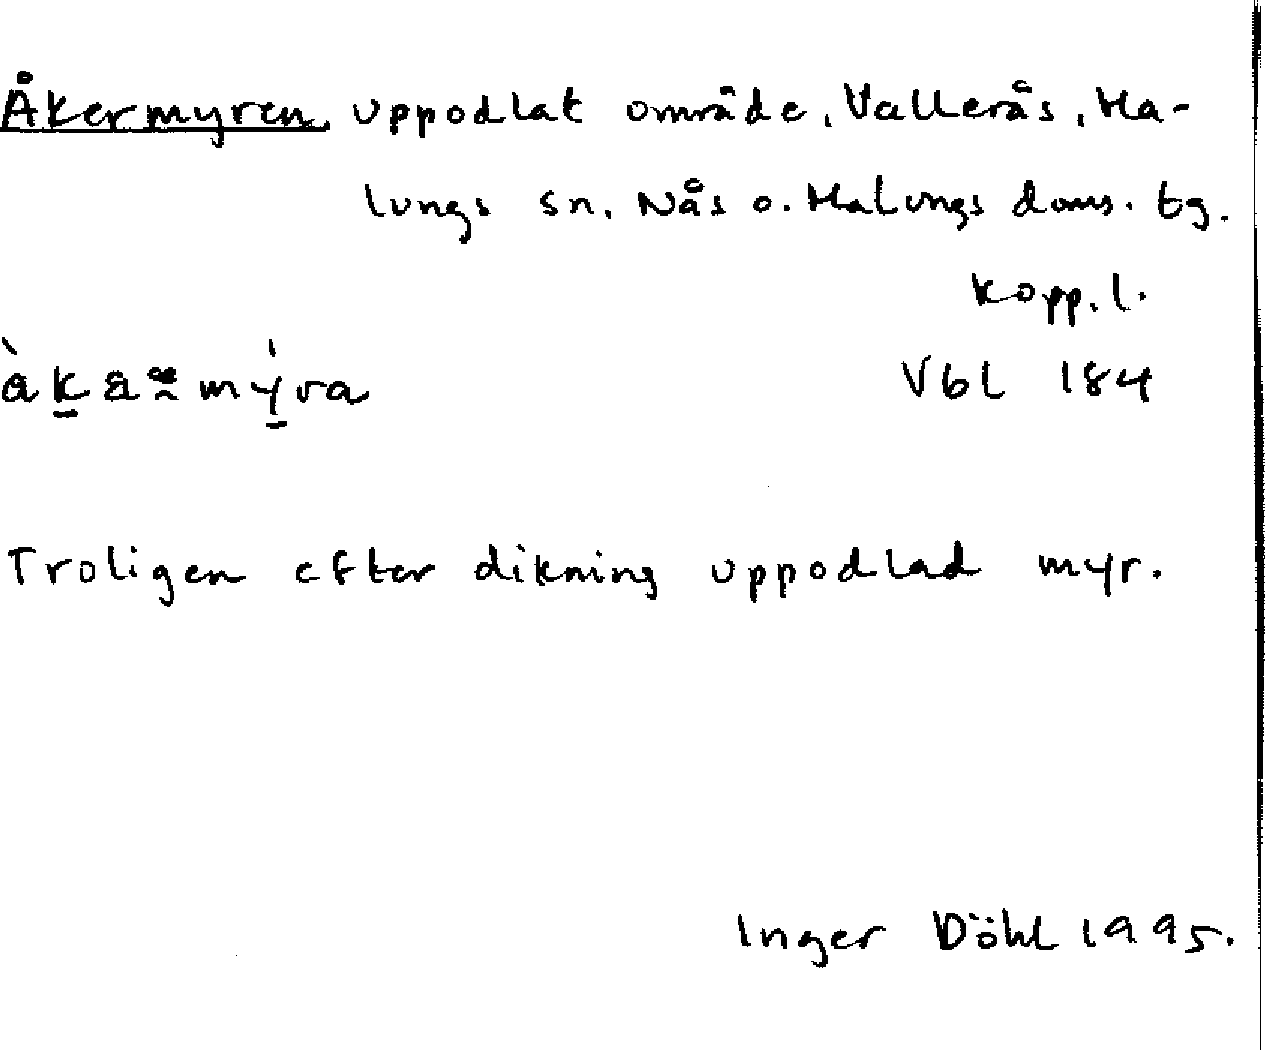 Åkermyren, uppodlat område, Vallerås, Ma-
lungs sn, Nås o. Malungs doms. tg.
Kopp. l.
Vbl 184
Troligen efter dikning uppodlad myr.
Inger Döhl 1995.